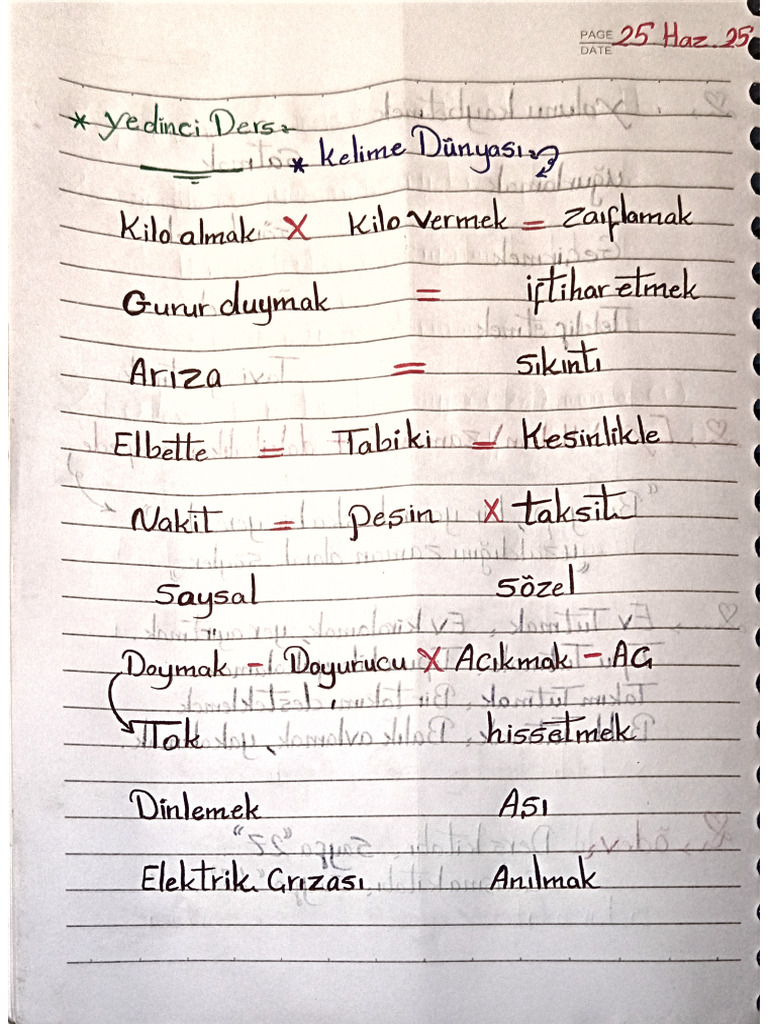 PAGE 25 Haz. 25
DATE
* Yedinci Ders.
* Kelime Dünyası.
Kilo almak X Kilo vermek = Zaıflamak
Gurur duymak = iftihar etmek
Arıza = sıkıntı
Elbette = Tabiki = Kesinlikle
Nakit = peşin X taksit
Saysal sözel
Doymak - Doyurucu X Acıkmak - AÇ
Tok hissetmek
Dinlemek Aşı
Elektrik Arızası Anılmak